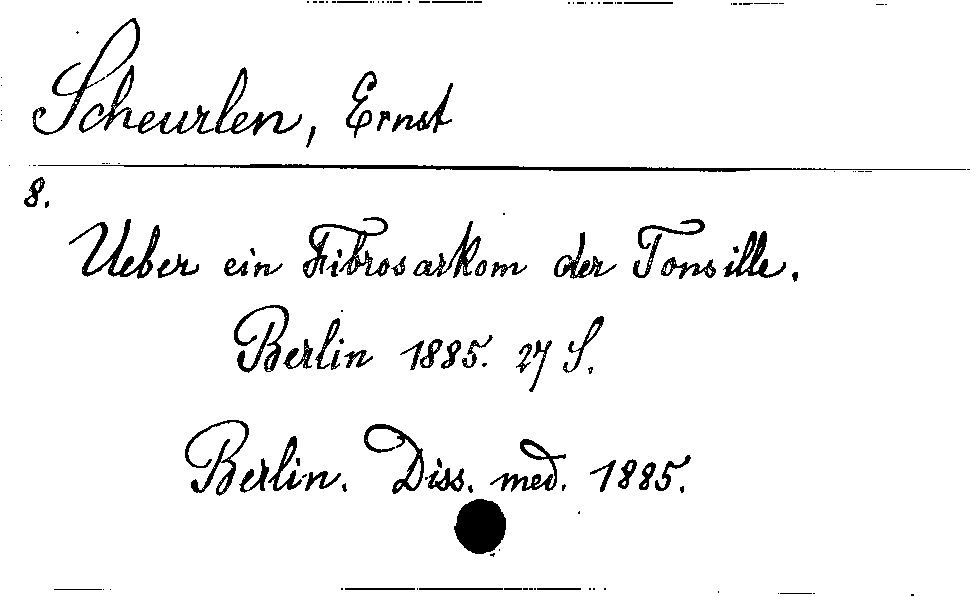 Scheurlen, Ernst
8.
Ueber ein Fibrosarkom der Tonsille.
Berlin 1885. 27 S.
Berlin. Diss. med. 1885.